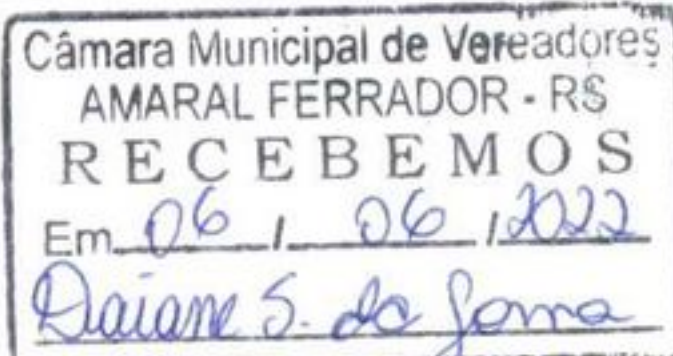 Câmara Municipal de Vereadores
AMARAL FERRADOR - RS
RECEBEMOS
Em 06 / 06 / 2022
Daiane S. da